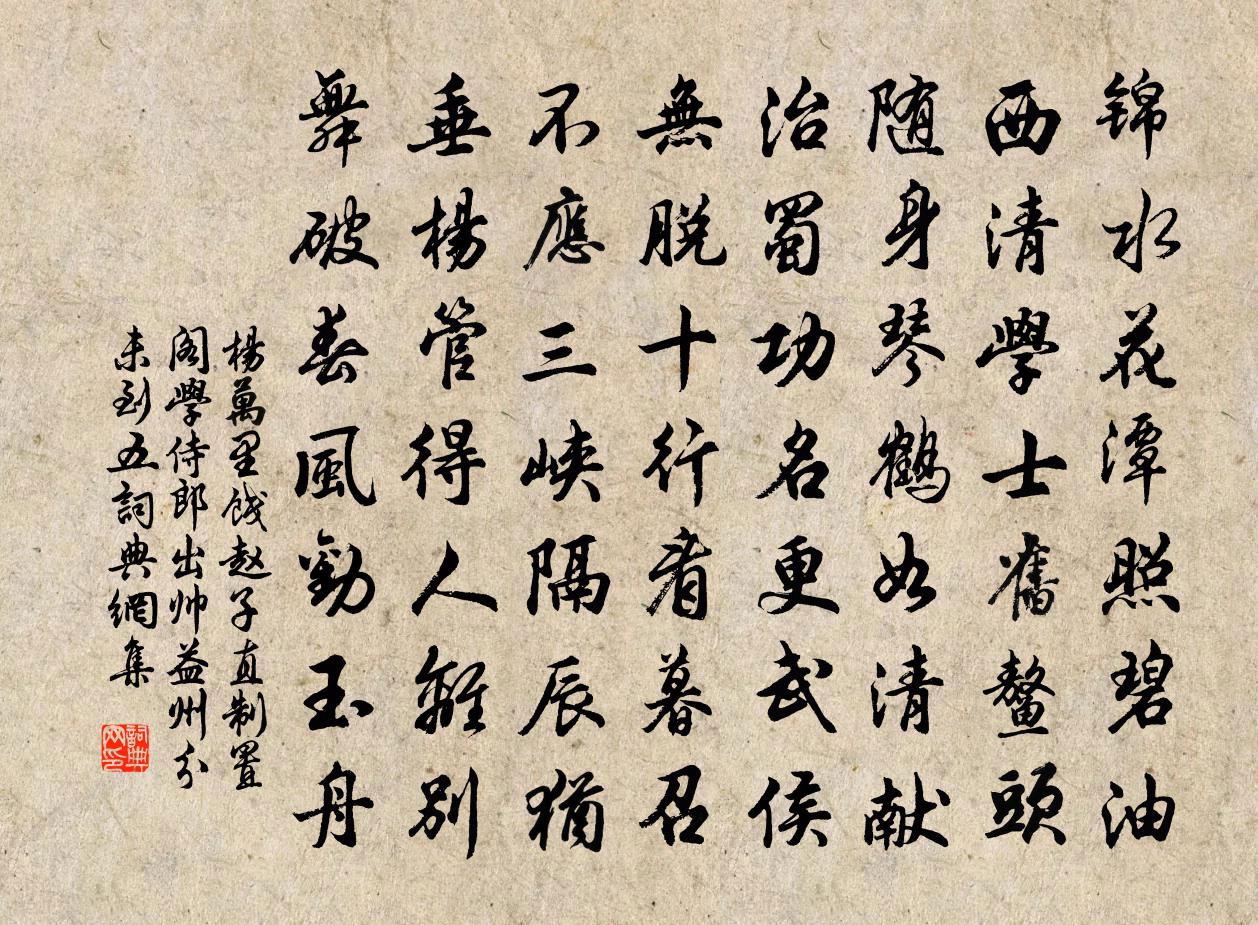 锦水花潭照碧油
西清學士舊鼇頭
随身琴鶴如清献
治蜀功名更武侯
無脱十行看暮召
不應三峡隔辰猶
垂楊管得人離別
舞破春風勸玉舟
楊萬里餞赵子直制置
阁學侍郎出帅益州分
未到五詞典網集
詞典网印